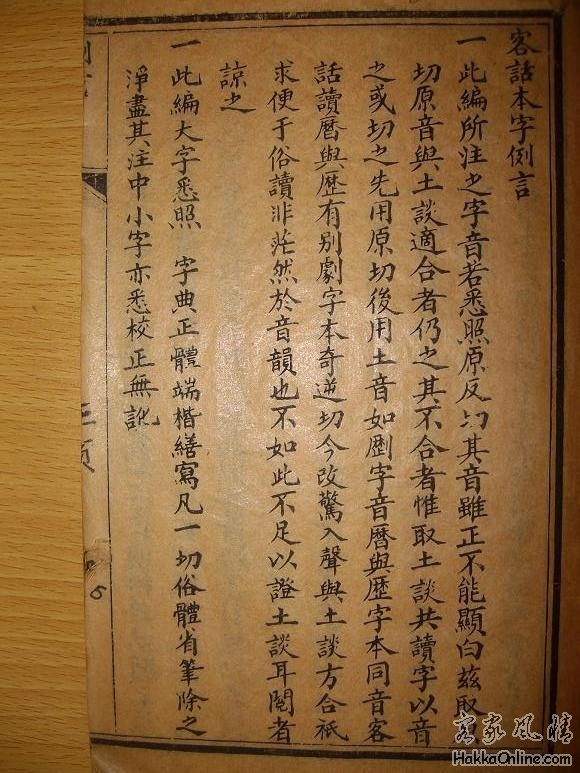 客話本字例言
一此編所注之字音若悉照原反切其音雖正不能顯白茲取
切原音與土談適合者仍之其不合者惟取土談共讀字以音
之或切之先用原切後用土音如㔏字音曆與歷字本同音客
話讀曆與歷有別劇字本奇逆切今改驚入聲與土談方合祇
求便于俗讀非茫然於音韻也不如此不足以證土談耳閱者
諒之
一此編大字悉照 字典正體端楷繕寫凡一切俗體省筆除之
淨盡其注中小字亦悉校正無訛
三頁
6
客家風情
HakkaOnline.com